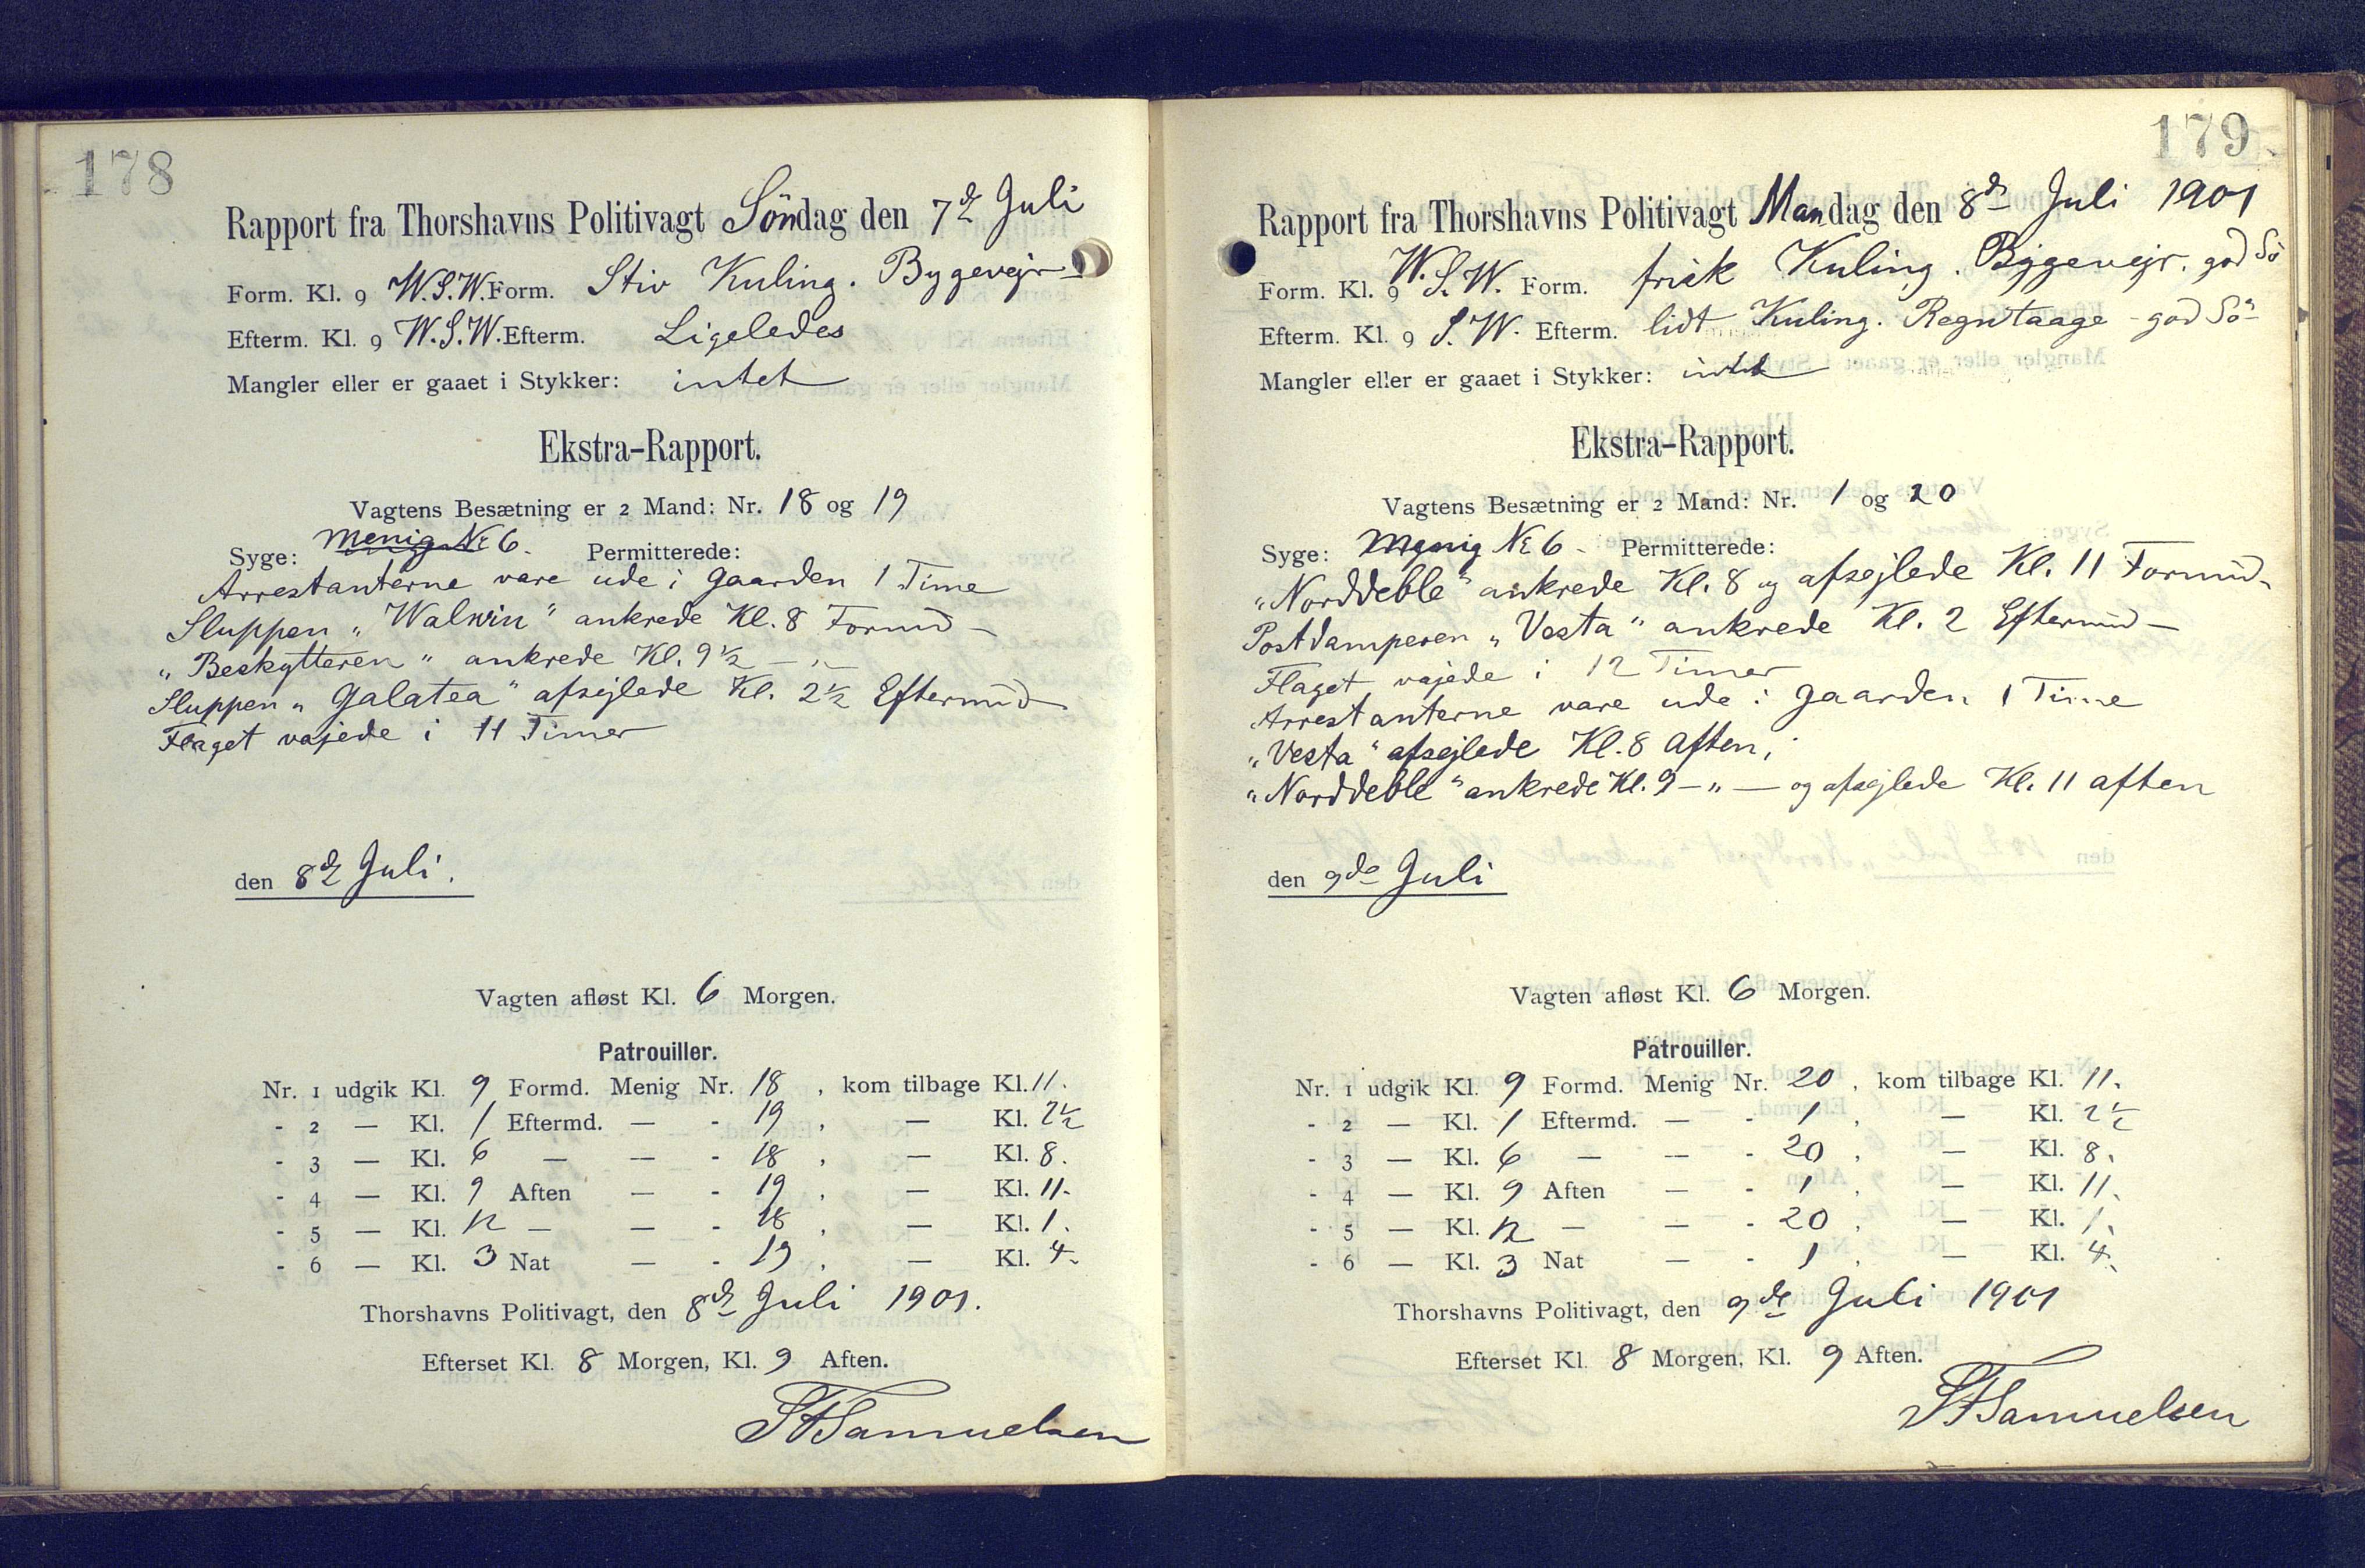 178
Rapport fra Thorshavns Politivagt Söndag den 7de Juli
Form. Kl. 9 W.S.W. Form. Stiv Kuling. Bygevejr
Efterm. Kl. 9 W.S.W. Efterm. Ligeledes
Mangler eller er gaaet i Stykker: intet
Ekstra-Rapport.
Vagtens Besætning er 2 Mand: Nr. 18 og 19
Syge: Menig Nr 6. Permitterede:
Arrestanterne vare ude i Gaarden 1 Time
Sluppen „Walwin" ankrede Kl. 8 Formd
„Beskytteren" ankrede Kl. 9½ — „ —
Sluppen „Galatea" afsejlede Kl. 2½ Eftermd
Flaget vajede i 11 Timer
den 8de Juli.
Vagten afløst Kl. 6 Morgen.
Patrouiller.
Nr. 1 udgik Kl. 9 Formd. Menig Nr. 18, kom tilbage Kl. 11.
- 2 — Kl. 1 Eftermd. — - 19, — Kl. 2½
- 3 — Kl. 6 — — - 18, — Kl. 8.
- 4 — Kl. 9 Aften — - 19, — Kl. 11.
- 5 — Kl. 12 — — - 18, — Kl. 1.
- 6 — Kl. 3 Nat — - 19, — Kl. 4.
Thorshavns Politivagt, den 8de Juli 1901.
Efterset Kl. 8 Morgen, Kl. 9 Aften.
Samuelsen
179
Rapport fra Thorshavns Politivagt Mandag den 8de Juli 1901
Form. Kl. 9 W.S.W. Form. frisk Kuling. Bygevejr. god Sö
Efterm. Kl. 9 S.W. Efterm. lidt Kuling. Regntaage - god Sö
Mangler eller er gaaet i Stykker: intet
Ekstra-Rapport.
Vagtens Besætning er 2 Mand: Nr. 1 og 20
Syge: Menig Nr 6 - Permitterede:
„Norddeble" ankrede Kl. 8 og afsejlede Kl. 11 Formd-
Postdamperen „Vesta" ankrede Kl. 2 Eftermd —
Flaget vajede i 12 Timer
Arrestanterne vare ude i Gaarden 1 Time
„Vesta" afsejlede Kl. 8 Aften,
„Norddeble" ankrede Kl. 9 — „ — og afsejlede Kl. 11 aften
den 9de Juli
Vagten afløst Kl. 6 Morgen.
Patrouiller.
Nr. 1 udgik Kl. 9 Formd. Menig Nr. 20, kom tilbage Kl. 11.
- 2 — Kl. 1 Eftermd. — - 1, — Kl. 2½
- 3 — Kl. 6 — — - 20, — Kl. 8.
- 4 — Kl. 9 Aften — - 1, — Kl. 11.
- 5 — Kl. 12 — — - 20, — Kl. 1.
- 6 — Kl. 3 Nat — - 1, — Kl. 4.
Thorshavns Politivagt, den 9de Juli 1901
Efterset Kl. 8 Morgen, Kl. 9 Aften.
Samuelsen